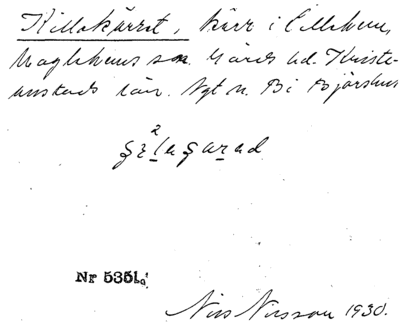 Killakärret, kärr i Lillehem,
Maglehems sn. Gärds hd. Kristi-
anstads län. Nyt n. Bi Bjärshus
Nr 5351
Nils Nilsson 1930.